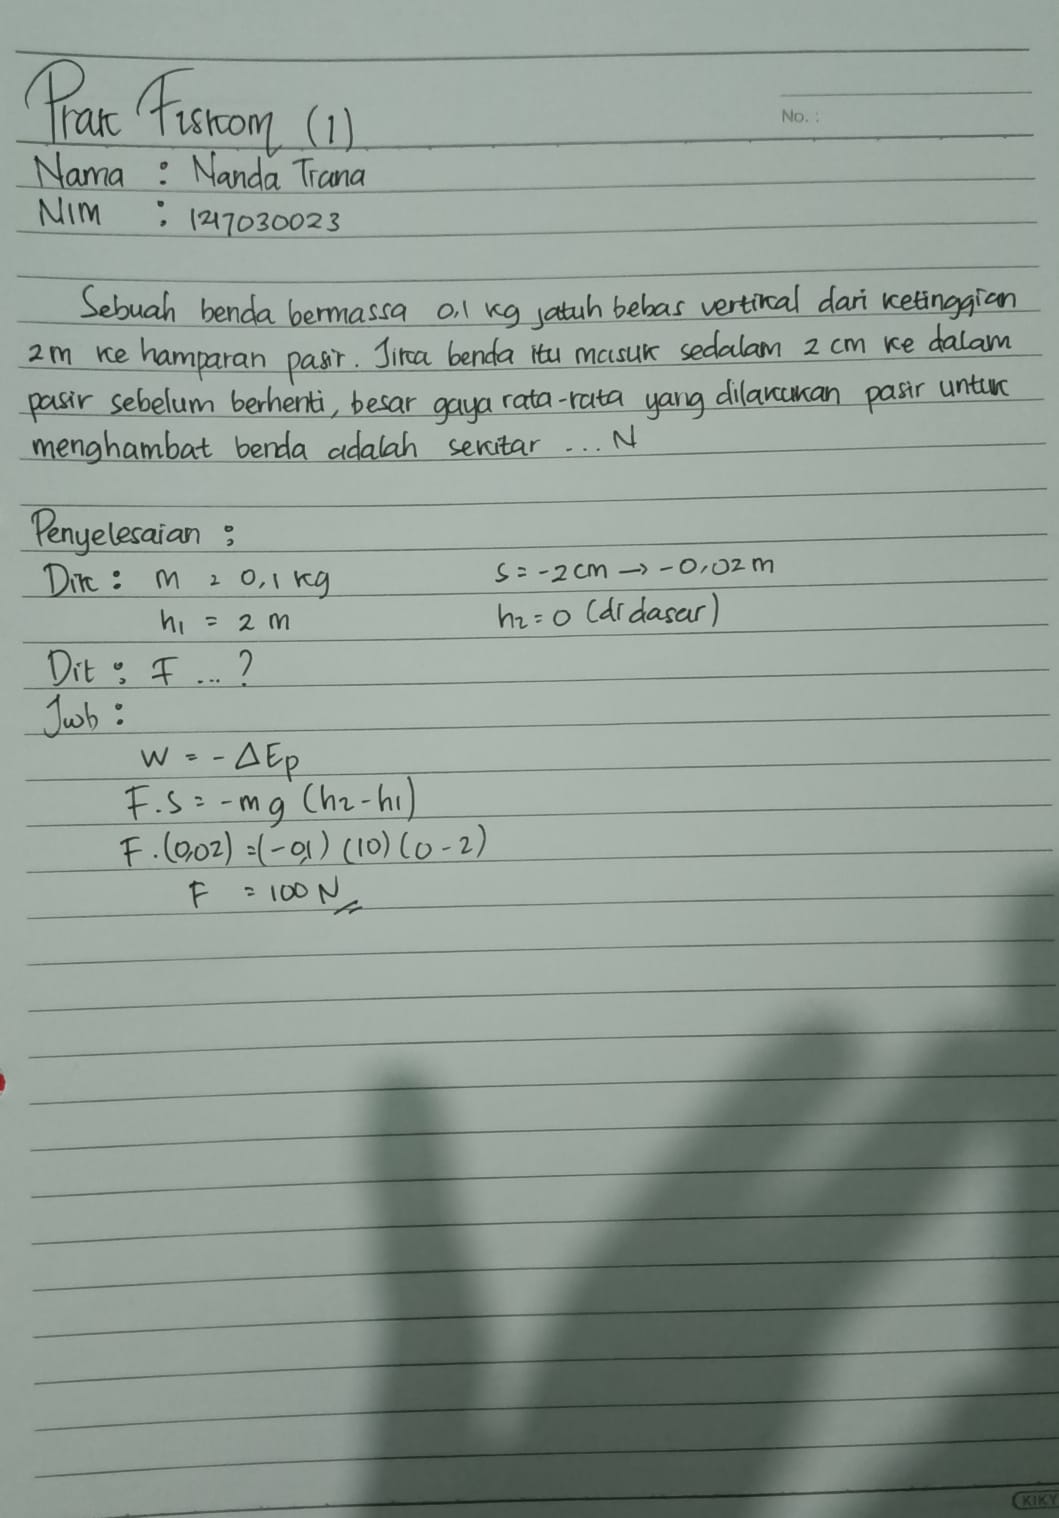 Prak Fiskom (1)
No. :
Nama : Nanda Triana
NIM : 1217030023
Sebuah benda bermassa 0,1 kg jatuh bebas vertikal dari ketinggian
2m ke hamparan pasir. Jika benda itu masuk sedalam 2 cm ke dalam
pasir sebelum berhenti, besar gaya rata-rata yang dilakukan pasir untuk
menghambat benda adalah sekitar ... N
Penyelesaian :
Dik : m = 0,1 kg s = -2 cm → -0,02 m
h1 = 2 m h2 = 0 (di dasar)
Dit : F ... ?
Jwb :
W = - ΔEp
F.S = -mg (h2-h1)
F.(0,02) = (-0,1) (10) (0-2)
F = 100 N
KIKY